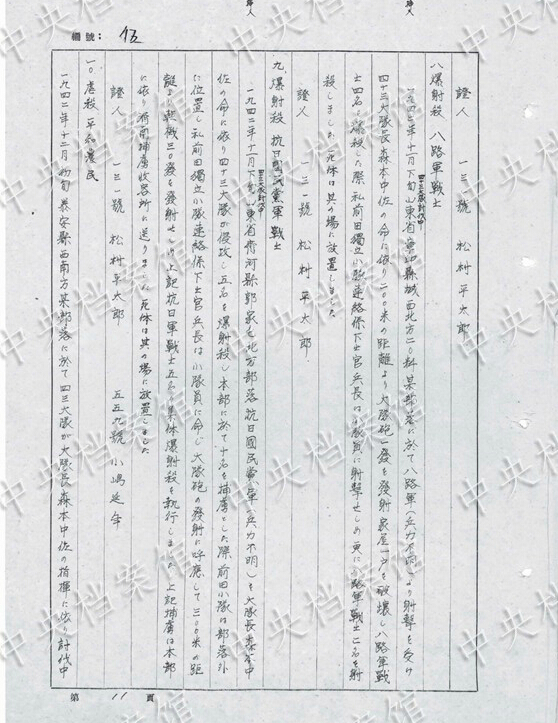 編號：伍
證人 一三一號 松村平太郎
八 爆射殺 八路軍戰士
一九四二年十一月下旬四三大隊討伐中山東省 縣城西北方二〇粁某部落に於て八路軍(兵力不明)より射擊を受け
四十三大隊長森本中佐の命に依り二〇〇米の距離より大隊砲一發を發射家屋一戶を破壞し八路軍戰
士四名を爆殺した際私前田獨立小隊連絡係下士官兵長は小隊員に射擊せしめ更に八路軍戰士二名を射
殺しました死体は其の場に放置しました
證人 一三一號 松村平太郎
九、爆射殺 抗日國民黨軍戰士
一九四二年十一月下旬四三大隊討伐中山東省 河縣郭家 北方部落抗日國民黨軍(兵力不明)を大隊長森本中
佐の命に依り四十三大隊が侵攻し五名を爆射殺し本部に於て十名を捕虜とした際前田小隊は部落外
に位置し私前田獨立小隊連絡係下士官兵長は小隊員に命じ大隊砲の發射に呼應して三〇〇米の距
離より輕機三〇發を發射せしめ上記抗日軍戰士五名の集体爆射殺を執行しました 上記捕虜は本部
に依り濟南捕虜收容所に送りました死体は其の場に放置しました
證人 一三一號 松村平太郎 五五九號 小嶋
一〇、虐殺 平和農民
一九四二年十二月初旬泰安縣西南方某部落に於て四三大隊が大隊長森本中佐の指揮に依り討伐中
第 11 頁
中央档案馆